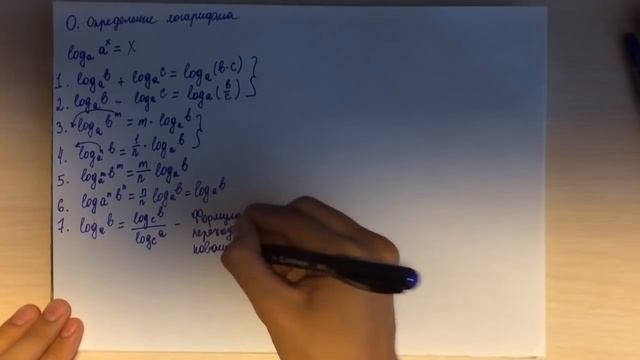 0. Определение логарифма
logₐ aˣ = X
1. logₐ b + logₐ c = logₐ (b·c)
2. logₐ b − logₐ c = logₐ (b/c)
3. logₐ bᵐ = m · logₐ b
4. log_{aⁿ} b = 1/n · logₐ b
5. log_{aⁿ} bᵐ = m/n logₐ b
6. log_{aⁿ} bⁿ = n/n logₐ b = logₐ b
7. logₐ b = log_c b / log_c a – Формула